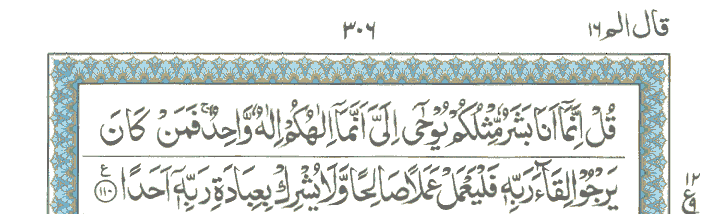 قال الم ١٦ ٣٠٦
قُلْ اِنَّمَاۤ اَنَا بَشَرٌ مِّثْلُكُمْ يُوْحٰۤى اِلَيَّ اَنَّمَاۤ اِلٰهُكُمْ اِلٰهٌ وَّاحِدٌ ۚ فَمَنْ كَانَ
يَرْجُوْا لِقَآءَ رَبِّهٖ فَلْيَعْمَلْ عَمَلًا صَالِحًا وَّلَا يُشْرِكْ بِعِبَادَةِ رَبِّهٖۤ اَحَدًا ۧ ﴿١١٠﴾
١٢
ع